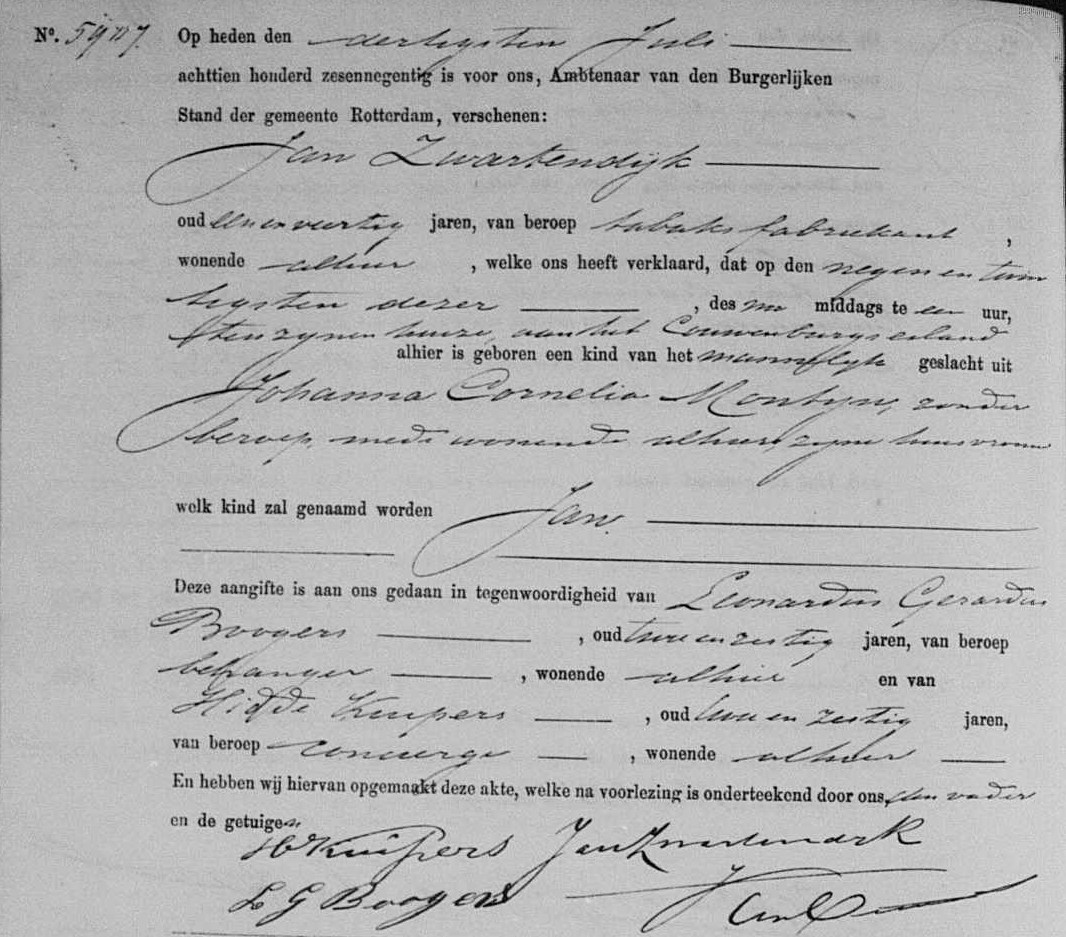 No. 5987 Op heden den dertigsten Juli
achttien honderd zesennegentig is voor ons, Ambtenaar van den Burgerlijken
Stand der gemeente Rotterdam, verschenen:
Jan Zwartendijk
oud een en veertig jaren, van beroep tabaksfabriekant ,
wonende alhier , welke ons heeft verklaard, dat op den negen en twin
tigsten dezer , des na middags te een uur,
ten zynen huize, aan het Couwenburgseiland
alhier is geboren een kind van het mannelyk geslacht uit
Johanna Cornelia Montyn, zonder
beroep, mede wonende alhier, zyne huisvrouw
welk kind zal genaamd worden Jan.
Deze aangifte is aan ons gedaan in tegenwoordigheid van Leonardus Gerardus
Boogers , oud twee en zestig jaren, van beroep
behanger , wonende alhier en van
Hidde Kuipers , oud twee en zestig jaren,
van beroep concierge , wonende alhier
En hebben wij hiervan opgemaakt deze akte, welke na voorlezing is onderteekend door ons, den vader
en de getuigen
H Kuipers Jan Zwartendijk
L G Boogers